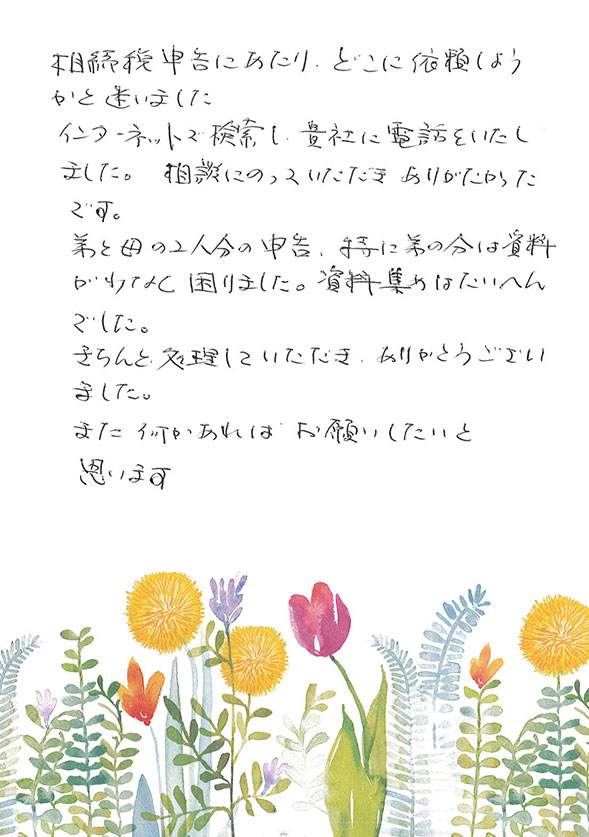 相続税申告にあたり、どこに依頼しよう
かと迷いました
インターネットで検索し、貴社に電話をいたし
ました。 相談にのっていただき ありがたかった
です。
弟と母の2人分の申告、特に弟の分は資料
がすくなく 困りました。資料集めはたいへん
でした。
きちんと処理していただき、ありがとうござい
ました。
また 何かあれば お願いしたいと
思います